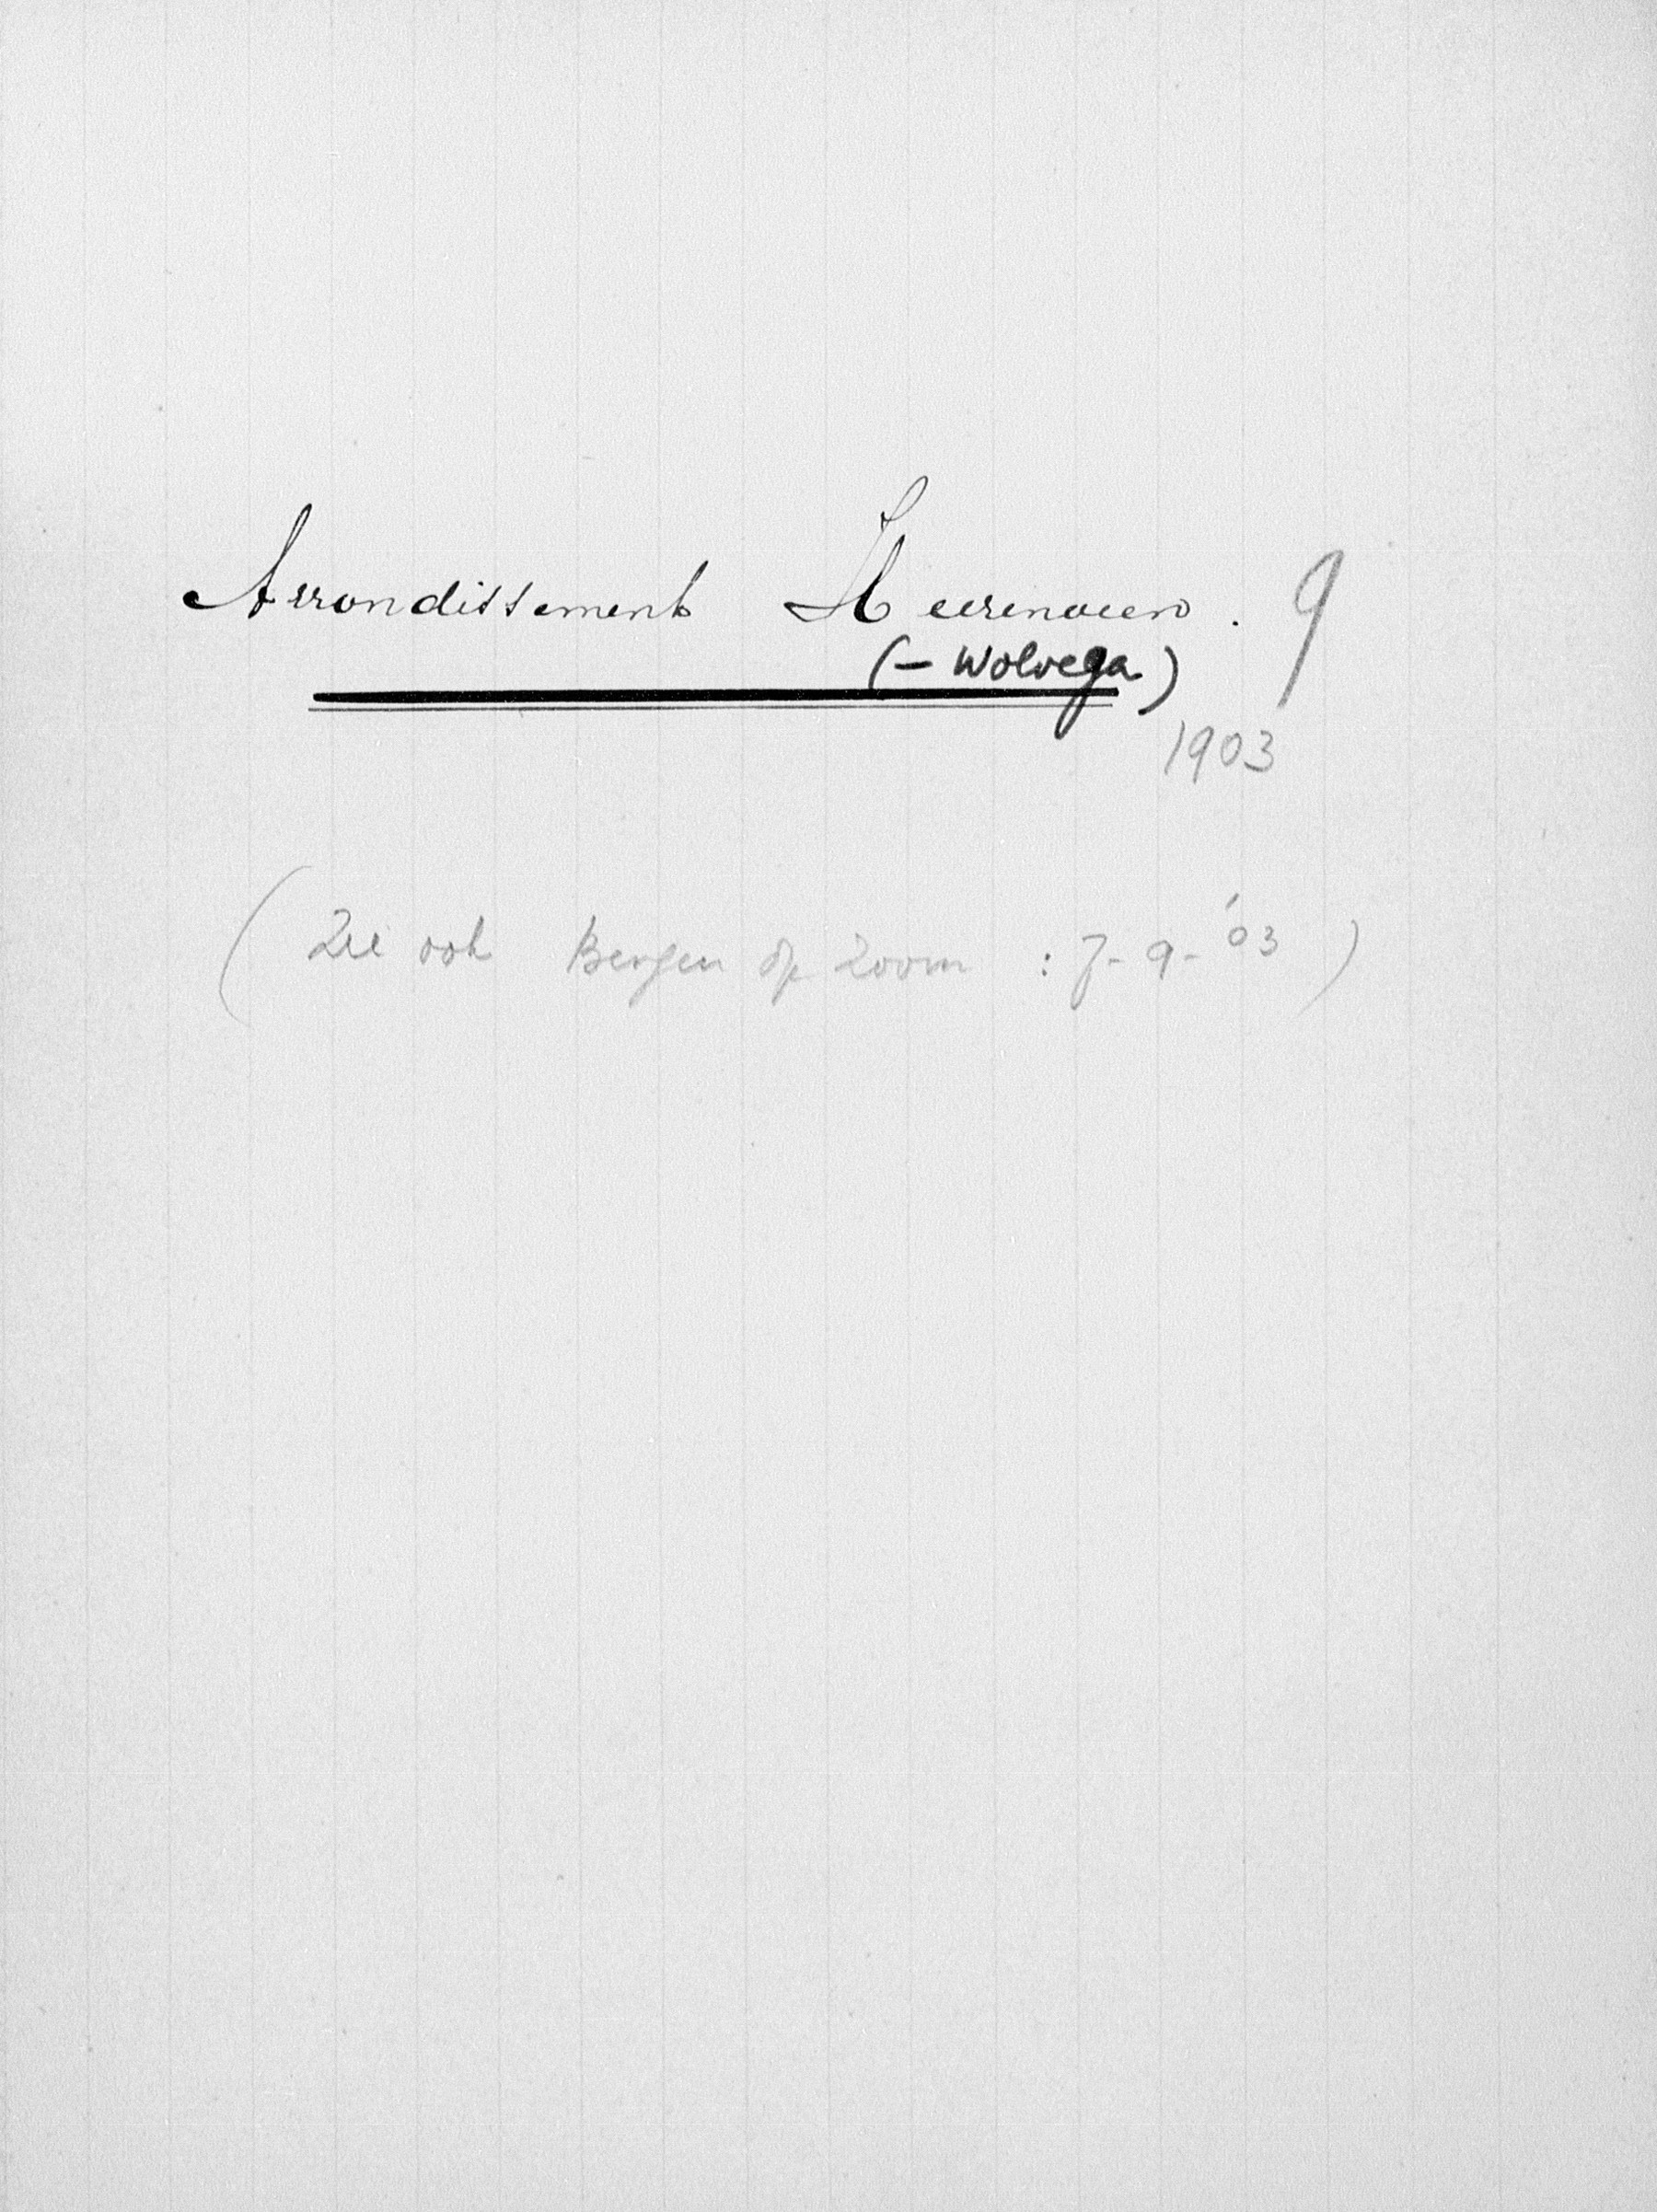 Arrondissement Heerenveen. 9
(- Wolvega)
1903
(Zie ook Bergen op Zoom : 7-9-'03)